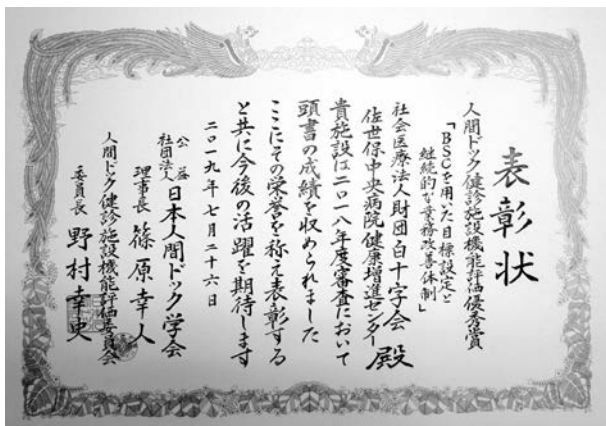 表彰状
人間ドック健診施設機能評価優秀賞
「BSCを用いた目標設定と
継続的な業務改善体制」
社会医療法人財団白十字会
佐世保中央病院健康増進センター殿
貴施設は二〇一八年度審査において
頭書の成績を収められました
ここにその栄誉を称え表彰する
と共に今後の活躍を期待します
二〇一九年七月二十六日
公益
社団法人 日本人間ドック学会
理事長 篠原幸人
人間ドック健診施設機能評価委員会
委員長 野村幸史